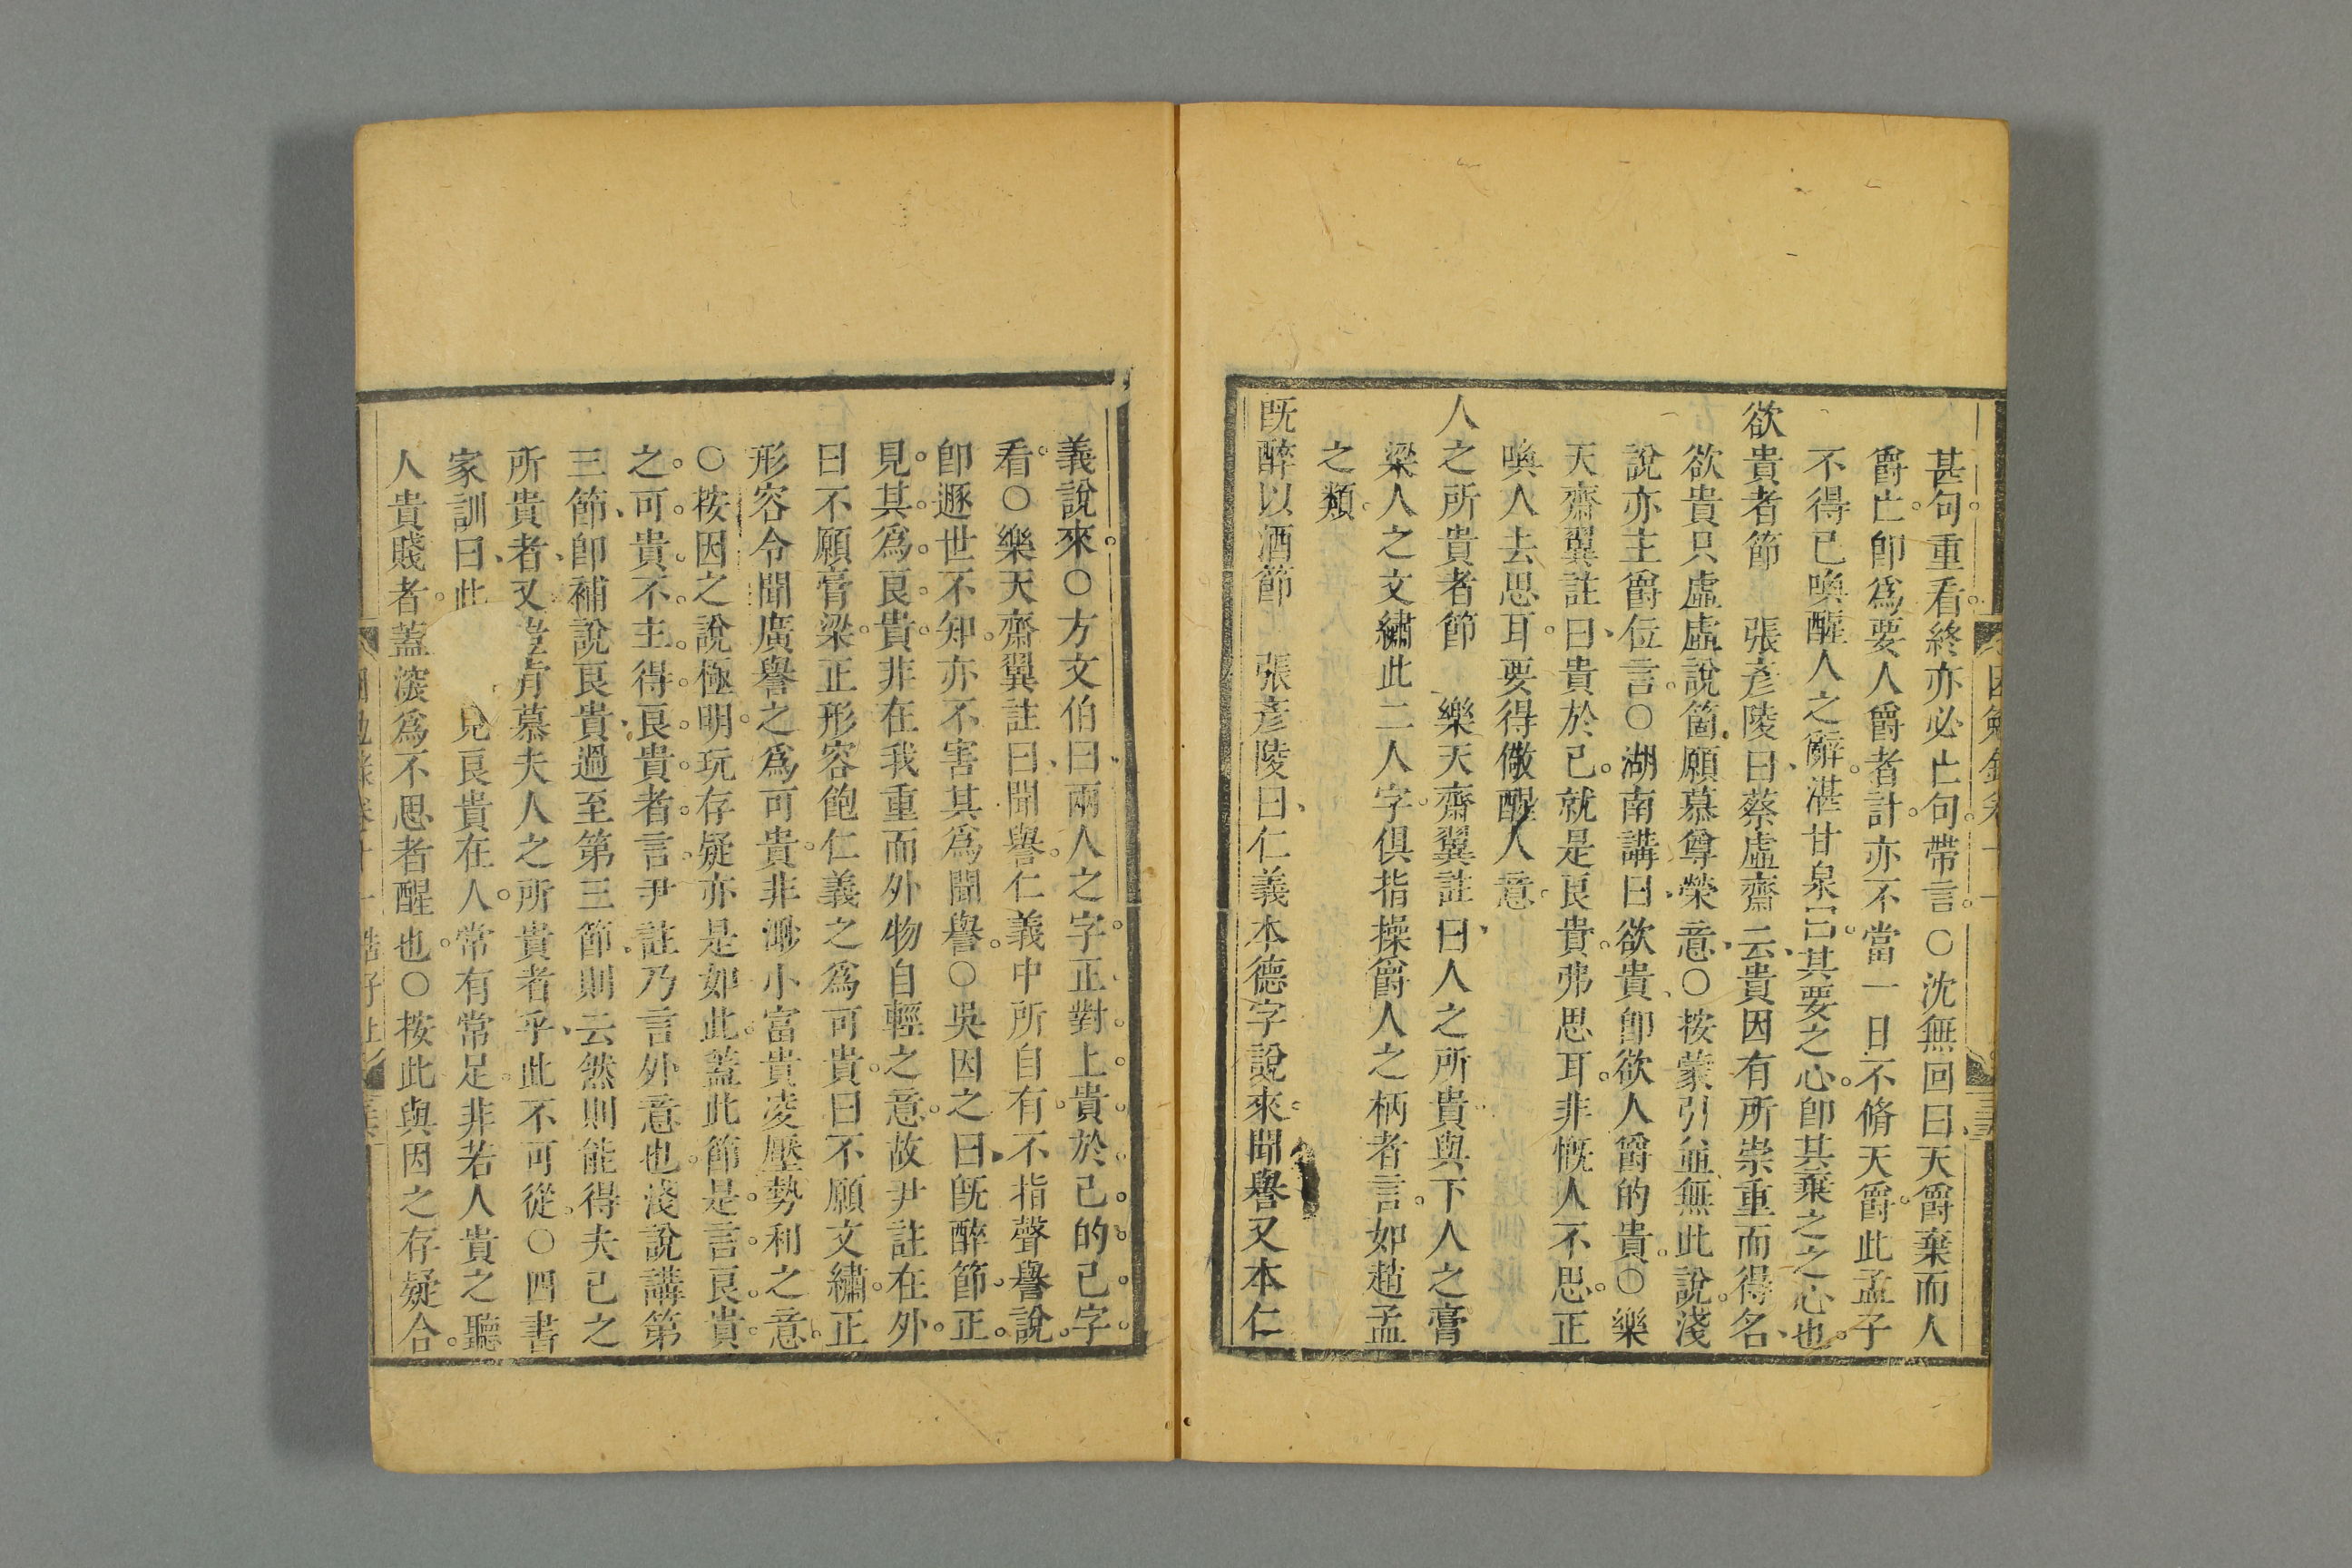 甚句重看終亦必亡句帶言○沈無回曰天爵棄而人
爵亡卽爲要人爵者計亦不當一日不脩天爵此孟子
不得已喚醒人之辭湛甘泉曰其要之心卽其棄之之心也
欲貴者節 張彥陵曰蔡虛齋云貴因有所崇重而得名
欲貴只虛虛說箇願慕尊榮意○按蒙引並無此說淺
說亦主爵位言○湖南講曰欲貴卽欲人爵的貴○樂
天齋翼註曰貴於己就是良貴弗思耳非慨人不思正
喚人去思耳要得儆醒人意
人之所貴者節 樂天齋翼註曰人之所貴與下人之膏
粱人之文繡此二人字俱指操爵人之柄者言如趙孟
之類
旣醉以酒節 張彥陵曰仁義本德字說來聞譽又本仁
義說來○方文伯曰兩人之字正對上貴於己的己字
看○樂天齋翼註曰聞譽仁義中所自有不指聲譽說
卽遯世不知亦不害其爲聞譽○吳因之曰旣醉節正
見其爲良貴非在我重而外物自輕之意故尹註在外
曰不願膏粱正形容飽仁義之爲可貴曰不願文繡正
形容令聞廣譽之爲可貴非渺小富貴凌壓勢利之意
○按因之說極明玩存疑亦是如此蓋此節是言良貴
之可貴不主得良貴者言尹註乃言外意也淺說講第
三節卽補說良貴過至第三節則云然則能得夫己之
所貴者又豈肯慕夫人之所貴者乎此不可從○四書
家訓曰此 見良貴在人常有常足非若人貴之聽
人貴賤者蓋深爲不思者醒也○按此與因之存疑合
困勉錄卷十一 告子上